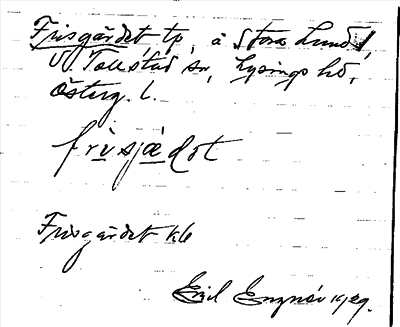 Frisgärdet tp, å Stora Lund,
V. Tollstad sn, Lysings hd,
Österg. l.
frisjædot
Frisgärdet kle
Emil Enqnér 1929.